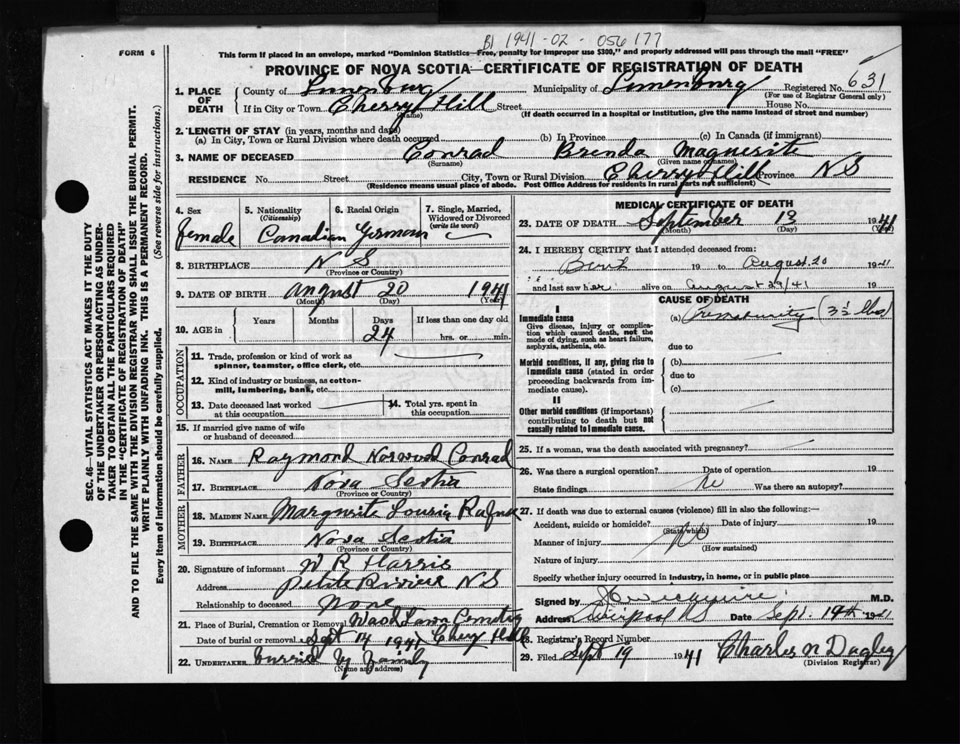 B) 1941-02-056177
FORM 6
This form if placed in an envelope, marked "Dominion Statistics—Free, penalty for improper use $300," and properly addressed will pass through the mail "FREE"
PROVINCE OF NOVA SCOTIA—CERTIFICATE OF REGISTRATION OF DEATH
1. PLACE OF DEATH County of Lunenburg Municipality of Lunenburg Registered No. 631
(For use of Registrar General only)
If in City or Town Cherry Hill Street House No.
(Name) (If death occurred in a hospital or institution, give the name instead of street and number)
2. LENGTH OF STAY (in years, months and days)
(a) In City, Town or Rural Division where death occurred (b) In Province (c) In Canada (if immigrant)
3. NAME OF DECEASED Conrad Brenda Maguerite
(Surname) (Given name or names)
RESIDENCE No. Street City, Town or Rural Division Cherry Hill Province NS
(Residence means usual place of abode. Post Office Address for residents in rural parts not sufficient)
4. Sex female
5. Nationality (Citizenship) Canadian
6. Racial Origin German
7. Single, Married, Widowed or Divorced (write the word)
8. BIRTHPLACE N S
(Province or Country)
9. DATE OF BIRTH August 20 1941
(Month) (Day) (Year)
10. AGE in Years Months Days 24 If less than one day old hrs. or min.
OCCUPATION
11. Trade, profession or kind of work as spinner, teamster, office clerk, etc.
12. Kind of industry or business, as cotton-mill, lumbering, bank, etc.
13. Date deceased last worked at this occupation 14. Total yrs. spent in this occupation
15. If married give name of wife or husband of deceased
FATHER
16. NAME Raymond Norwood Conrad
17. BIRTHPLACE Nova Scotia
(Province or Country)
MOTHER
18. MAIDEN NAME Marguerite Louise
19. BIRTHPLACE Nova Scotia
(Province or Country)
20. Signature of informant W R Harris
Address Petite Riviere N S
Relationship to deceased None
21. Place of Burial, Cremation or Removal Cemetry
Date of burial or removal Sept 14 1941 Cherry Hill
22. UNDERTAKER Family
(Name and address)
MEDICAL CERTIFICATE OF DEATH
23. DATE OF DEATH September 13 1941
(Month) (Day) (Year)
24. I HEREBY CERTIFY that I attended deceased from:
Birth 19 to August 20 19
and last saw her alive on August 29/41
CAUSE OF DEATH
I
Immediate cause
Give disease, injury or complication which caused death, not the mode of dying, such as heart failure, asphyxia, asthenia, etc.
(a) Prematurity (3½ lbs)
due to
Morbid conditions, if any, giving rise to immediate cause (stated in order proceeding backwards from immediate cause).
(b)
due to
(c)
II
Other morbid conditions (if important) contributing to death but not causally related to immediate cause.
25. If a woman, was the death associated with pregnancy?
26. Was there a surgical operation? Date of operation 19
State findings no Was there an autopsy?
27. If death was due to external causes (violence) fill in also the following:—
Accident, suicide or homicide? Date of injury 19
(State which)
Manner of injury No
(How sustained)
Nature of injury
Specify whether injury occurred in industry, in home, or in public place
Signed by M.D.
Address Liverpool N S Sept. 19th 19
28. Registrar's Record Number
29. Filed Sept 19 1941 Charles N Dagley
(Division Registrar)
SEC. 46—VITAL STATISTICS ACT MAKES IT THE DUTY
OF THE UNDERTAKER OR PERSON ACTING AS UNDER-
TAKER TO OBTAIN ALL THE PARTICULARS REQUIRED
IN THE "CERTIFICATE OF REGISTRATION OF DEATH"
AND TO FILE THE SAME WITH THE DIVISION REGISTRAR WHO SHALL ISSUE THE BURIAL PERMIT.
WRITE PLAINLY WITH UNFADING INK. THIS IS A PERMANENT RECORD.
Every item of information should be carefully supplied. (See reverse side for instructions)